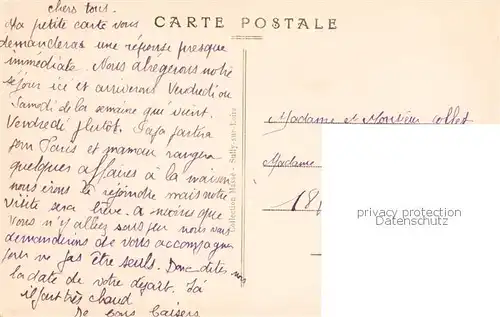 chers tous.
CARTE POSTALE
Ma petite carte vous
demandera une réponse presque
immédiate. Nous abrégerons notre
séjour ici et arriverons Vendredi ou
Samedi de la semaine qui vient.
Vendredi plutôt. Papa partira
pour Paris et maman rangera
quelques affaires à la maison
nous irons le rejoindre mais notre
visite sera brève. à moins que
vous n'y alliez nous
demanderons de vous accompagner
pour ne pas être seuls. Donc dites nous
la date de votre départ. Là
il fait très chaud
De bons baisers
Collection Masse - Sully-sur-Loire
Madame et Monsieur Collet
Madame
18,
privacy protection